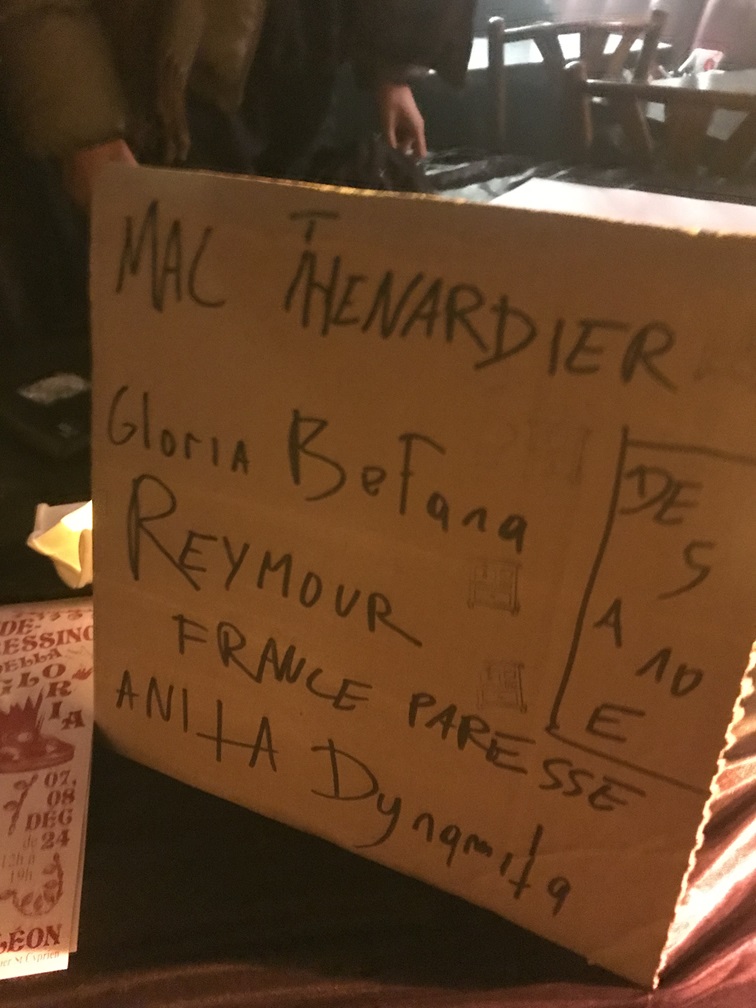 MAC THENARDIER
Gloria Befana
REYMOUR
FRANCE PARESSE
ANITA Dynamita
DE
S
A
E
DE-
ESSINO
DELLA
GLO
R
IA
07,
08
DEC
de 24
12h à
19h
LÉON